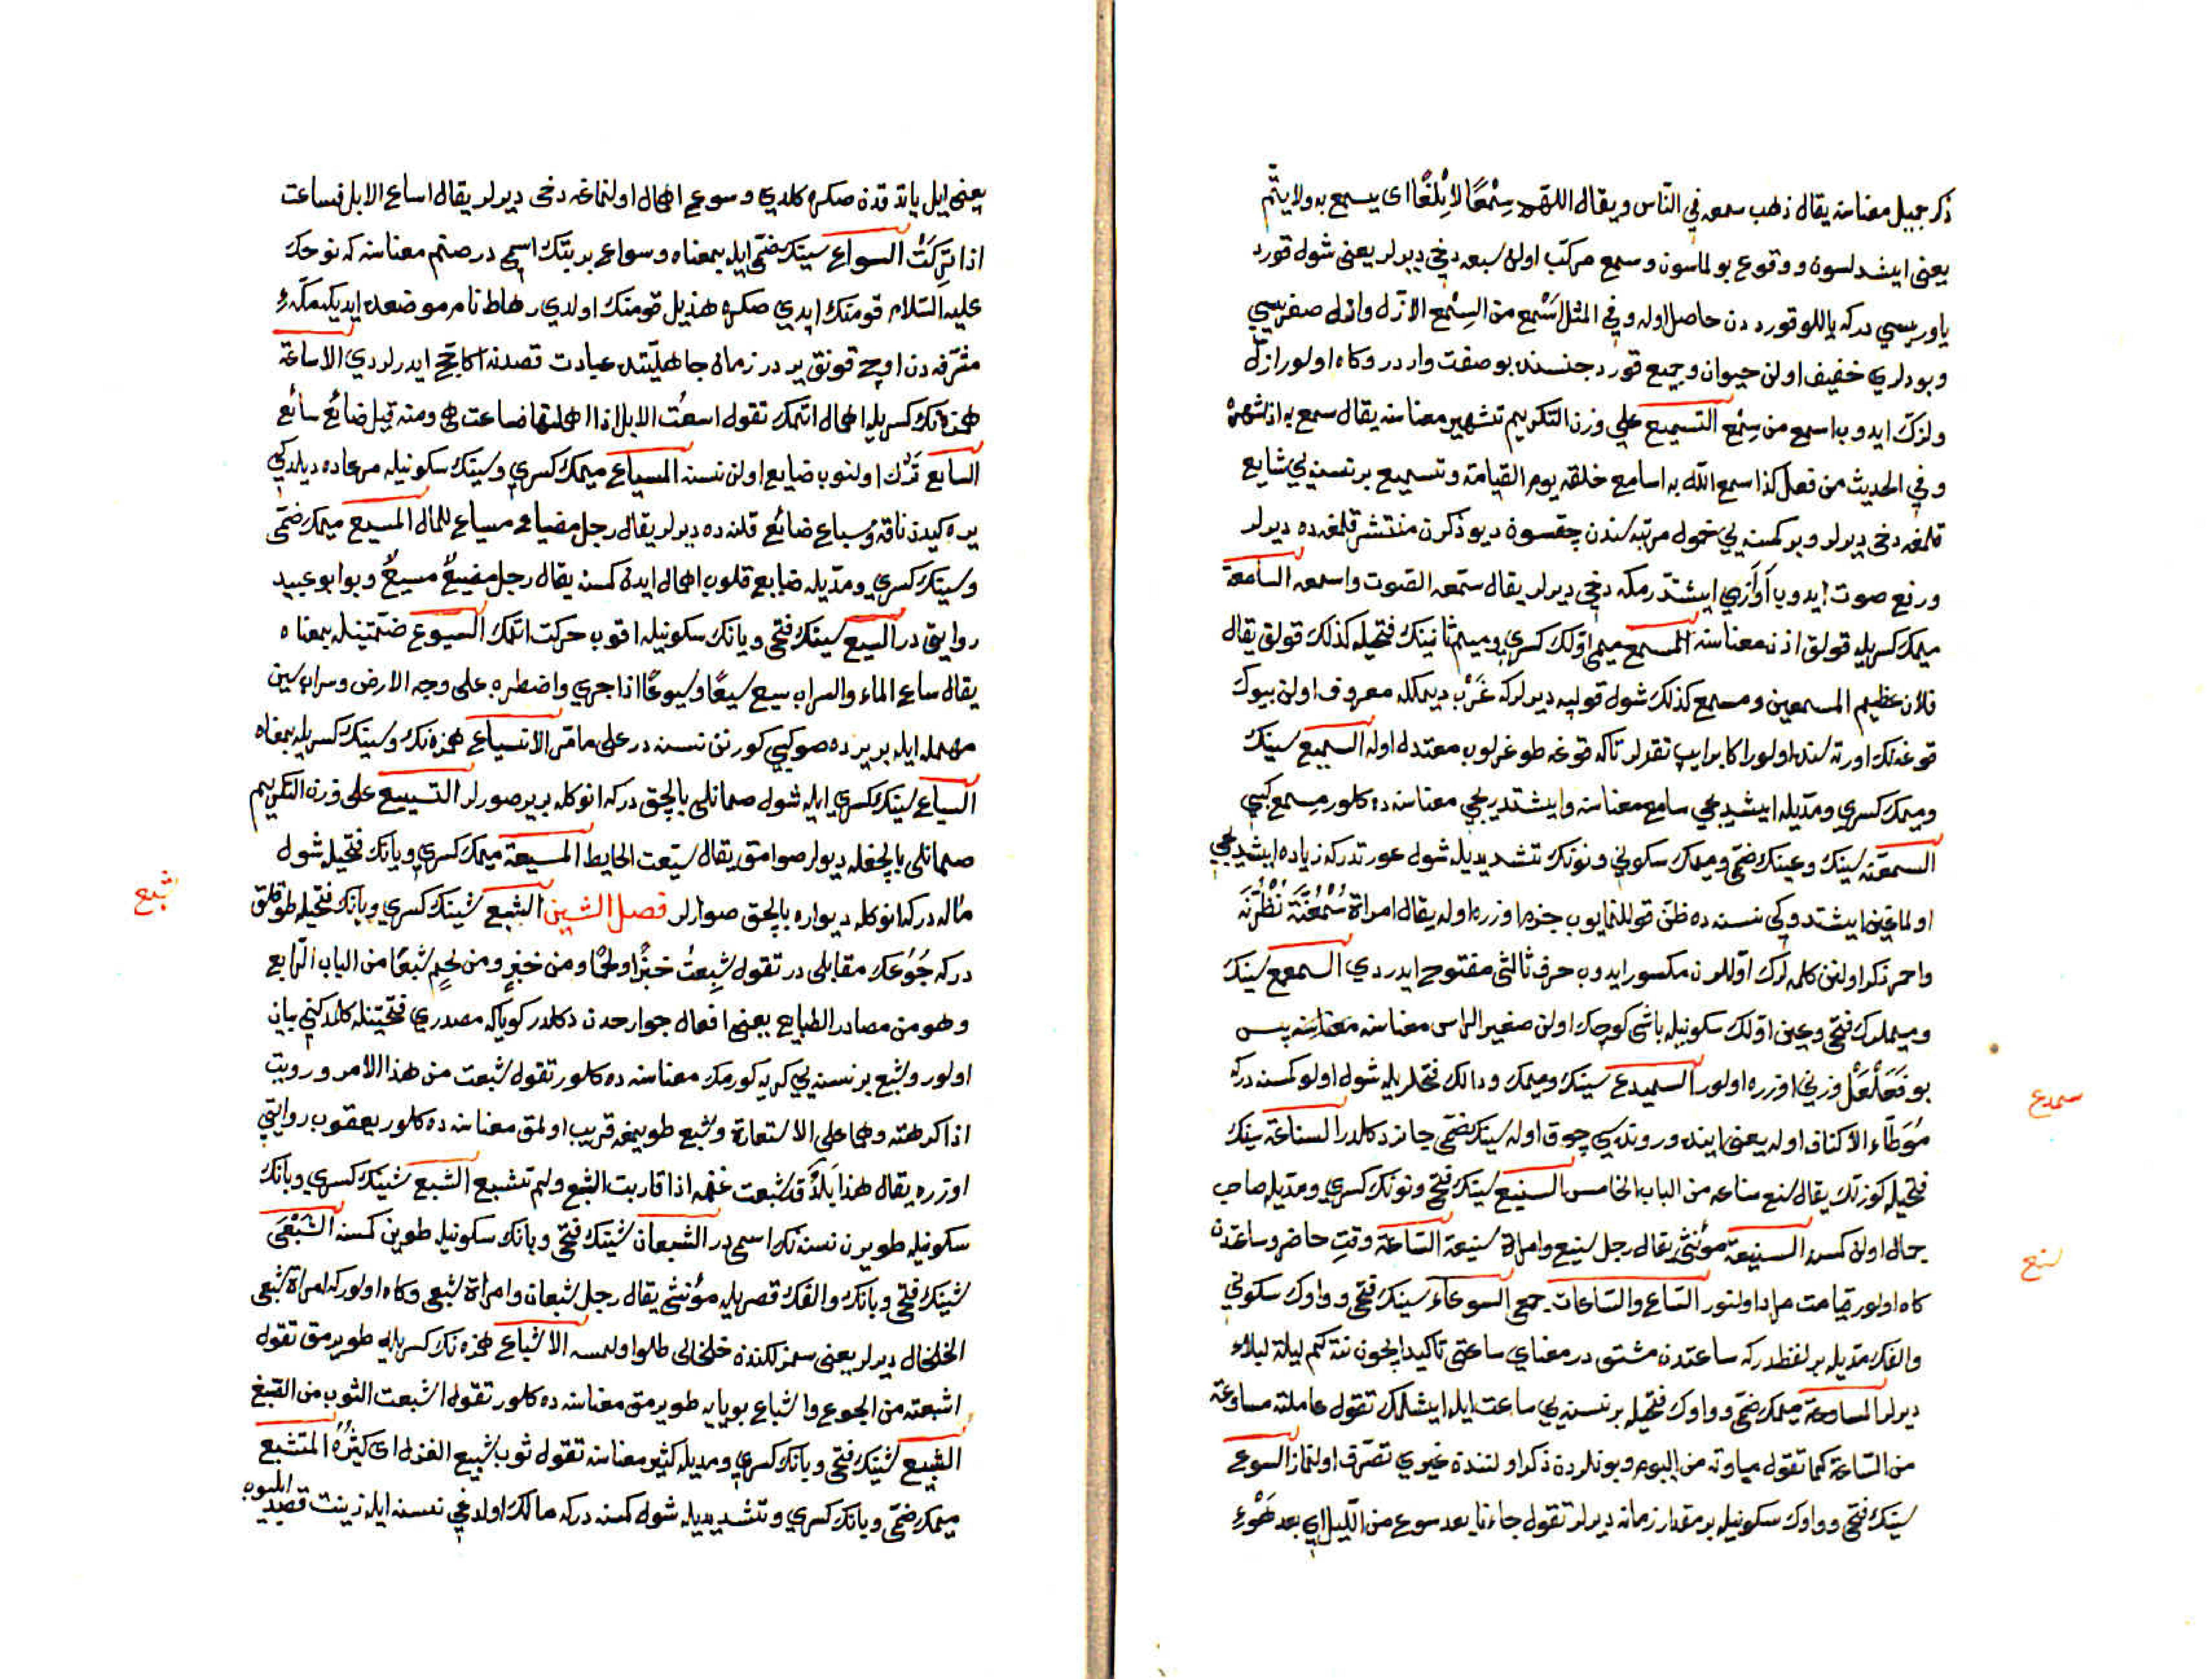 ذكر جميل معناسنه يقال ذهب سمعه في النّاس ويقال اللهم سِمْعًا لا بِلْغًا اى يسمع به ولا يتم
يعنى ايشدلسون ووقوع بولماسون وسمع مركّب اولن سبعه دخي ديرلر يعنى شول قورد
ياوريسى دركه ياللو قورددن حاصل اوله وفي المثل اَسْمع من السِمْع الازلّ وازل صغريسي
وبودلري خفيف اولن حيوان وجميع قورد جنسنده بو صفت واردر وكاه اولور ازلّ
ولزك ايدوب اسمع من سِمْع التسميع علي وزن التكريم تشهير معناسنه يقال سمع به اذا شهره
وفي الحديث من فعل كذا سمع الله به اسامع خلقه يوم القيامة وتسميع بر نسنه يي شايع
قلمغه دخى ديرلر وبر كمسه يي خمول مرتبه سندن چقسون ديو ذكرن منتشر قلمغه ده ديرلر
ورفع صوت ايدوب آوازي ايشتدرمكه دخي ديرلر يقال سمّعه الصّوت واسمعه السامعة
ميمك كسريله قولق اذن معناسنه المسمع ميم اوّلك كسري وميم ثانينك فتحيله كذلك قولق يقال
فلان عظيم المسمعين ومسمع كذلك شول قولپه ديرلركه غَرْب ديمكله معروف اولن بيوك
قوغه نك اورته سنده اولور اكا بر ايپ تقرلر تاكه قوغه طوغرلوب معتدل اوله السميع سينك
وميمك كسري ومدّيله ايشيديجي سامع معناسنه وايشتديريجي معناسنه ده كلور مسمع كبي
السمعنة سينك وعينك ضمّي وميمك سكوني ونونك تشديديله شول عورتدركه زياده ايشديجي
اولماغين ايشتدوكي نسنه ده ظنّ قوللنمايوب جزم اوزره اوله يقال امراة سُمْعُنّة نُظْرُنّة
واحمر ذكر اولنن كلمه لرك اوّللرن مكسور ايدوب حرف ثالثى مفتوح ايدردي السمعمع سينك
وميملرك فتحى وعين اوّلك سكونيله باشى كوچك اولن صغير الراس معناسنه معناسنه پس
بو فَعَلْعَلْ وزني اوزره اولور السميدع سينك وميمك ودالك فتحلريله شول اولو كمسه دركه
مُوَطّاء الاكناف اوله يعنى اينده وروندسى چوق اوله سينك ضمّى جائز دكلدر السناعة سينك
فتحيله كوزلك يقال سنع سناعه من الباب الخامس السنيع سينك فتحى ونونك كسري ومدّيله صاحب
جمال اولن كمسه السنيعة مؤنثى يقال رجل سنيع وامراة سنيعة السّاعة وقت حاضر وساعتدن
كاه اولور قيامت مراد اولنور السّاع والسّاعات جمعى السوعاء سينك فتحى وواوك سكوني
والفك مدّيله بر لفظدركه ساعتدن مشتق در معناي ساعتى تاكيد ايچون نته كم ليلة ليلاء
ديرلر المساوعة ميمك ضمّى وواوك فتحيله بر نسنه يي ساعت ايله ايشلمك تقول عاملته مساوعة
من السّاعة كما تقول مياومة من اليوم وبونلردن ذكر اولنندن غيري تصرّف اولنماز السوع
سينك فتحى وواوك سكونيله بر مقدار زمانه ديرلر تقول جاءنا بعد سوع من اللّيل اي بعد هَوْءٍ
سمدع
سنع
يعنى ايل ياتدقدن صكره كلدي وسوع اهمال اولنماغه دخى ديرلر يقال اساع الابل فساعت
اذا تركَتْ السواع سينك ضمّى ايله بمعناه وسواع بر بتك اسمى در صنم معناسنه كه نوحك
عليه السّلام قومنك ايدي صكره هذيل قومنك اولدي رهاط نام موضعده ايديكه مكّه ء
مشرّفه دن اوچ قونق يردر زمان جاهليّتده عبادت قصدنه اكا حج ايدرلردي الاساعة
همزه نك كسريله اهمال اتمك تقول اسعُت الابل اذا اهملتها فساعت هى ومنه قيل ضائع سائع
السايع تَرْك اولنوب ضايع اولن نسنه المسياع ميمك كسري وسينك سكونيله مرعاده ديلدكي
يره كيدن ناقه وسياع ضائع قلنه ده ديرلر يقال رجل مضياع مسياع للمال المسيع ميمك ضمّى
وسينك كسري ومدّيله ضايع قلوب اهمال ايدن كمسه يقال رجل مضيعٌ مسيعٌ وبو ابو عبيد
روايتى در السيع سينك فتحى ويانك سكونيله اقوب حركت اتمك السيوع ضمّتينله بمعناه
يقال ساع الماء والسراب يسيع سيعًا وسيوعًا اذا جري واضطرب على وجه الارض وسراب سين
مهمله ايله بر يرده صو كبي كورنن نسنه در على ما مرّ الانسياع همزه نك وسينك كسريله بمعناه
السياع سينك كسري ايله شول صمانلى بالچق دركه انوكله بر ير صورلر التسييع على وزن التكريم
صمانلى بالچغله ديولر صوامق يقال سيّعت الحايط المسيعة ميمك كسري ويانك فتحيله شول
ماله دركه انوكله ديواره بالچق صوارلر فصل الشين الشبع شينك كسري وبانك فتحيله طوقلق
دركه جُوُعك مقابلى در تقول شبِعتُ خبزًا ولحمًا ومن خبزٍ ومن لحمٍ شبعًا من الباب الرّابع
وهو من مصادر الطبايع يعنى افعال جوارحدن دكلدر كوياكه مصدري فتحتينله كلدكني بيان
اولور وشبع بر نسنه يي كريه كورمك معناسنه ده كلور تقول شبعت من هذا الامر ورويت
اذا كرهته وهما على الاستعارة وشبع طويمغه قريب اولمق معناسنه ده كلور يعقوب روايتى
اوزره يقال هذا بَلَدٌ قد شبعت غنمه اذا قاربت الشبع ولم تشبع الشبع شينك كسري وبانك
سكونيله طويرن نسنه نك اسمى در الشبعان شينك فتحى وبانك سكونيله طوين كمسه الشَبْعَى
شينك فتحى وبانك والفك قصريله مؤنثى يقال رجل شبعان وامراة شبعى وكاه اولوركه امراة شبعى
الخلخال ديرلر يعنى سمزلكندن خلخالى طلو اولمسه الاشباع همزه نك كسريله طويرمق تقول
اشبعته من الجوع واشباع بويايه طويرمق معناسنه ده كلور تقول اشبعت الثوب من الصّبغ
الشبيع شينك فتحى وبانك كسري ومديله كثير معناسنه تقول ثوب شبيع الغزل اى كثيرُهُ المتشبع
ميمك ضمّى وبانك كسري وتشديديله شول كمسه دركه مالك اولمدغي نسنه ايله زينت قصد ايليوب
شبع